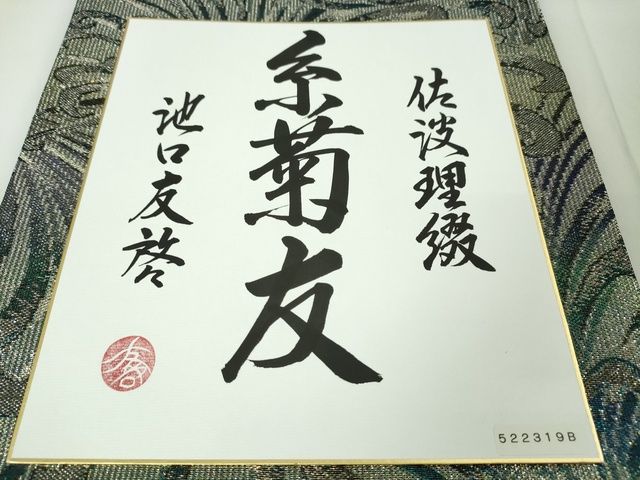 佐波理綴
糸菊友
池口友啓
522319B